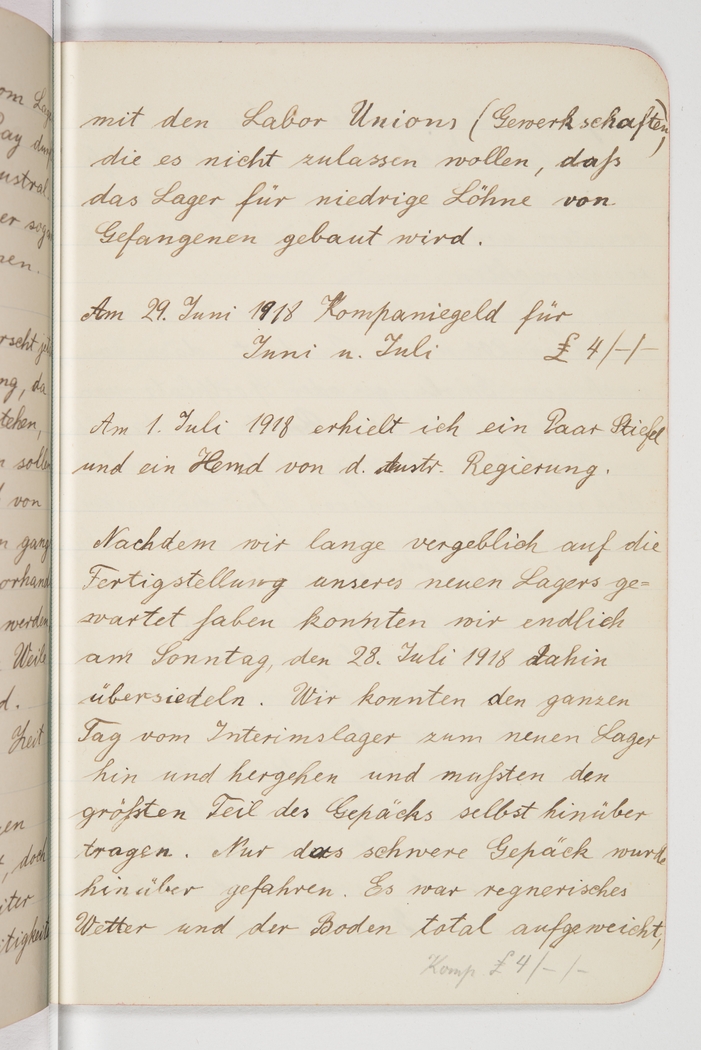 mit den Labor Unions (Gewerkschaften,)
die es nicht zulassen wollen, daß
das Lager für niedrige Löhne von
Gefangenen gebaut wird.
Am 29. Juni 1918 Kompaniegeld für
Juni u. Juli £ 4/-/-
Am 1. Juli 1918 erhielt ich ein Paar Stiefel
und ein Hemd von d. Austr. Regierung.
Nachdem wir lange vergeblich auf die
Fertigstellung unseres neuen Lagers ge=
wartet haben konnten wir endlich
am Sonntag, den 28. Juli 1918 dahin
übersiedeln. Wir konnten den ganzen
Tag vom Interimslager zum neuen Lager
hin und hergehen und mußten den
größten Teil des Gepäcks selbst hinüber
tragen. Nur das schwere Gepäck wurde
hinüber gefahren. Es war regnerisches
Wetter und der Boden total aufgeweicht,
Komp £ 4/-/-